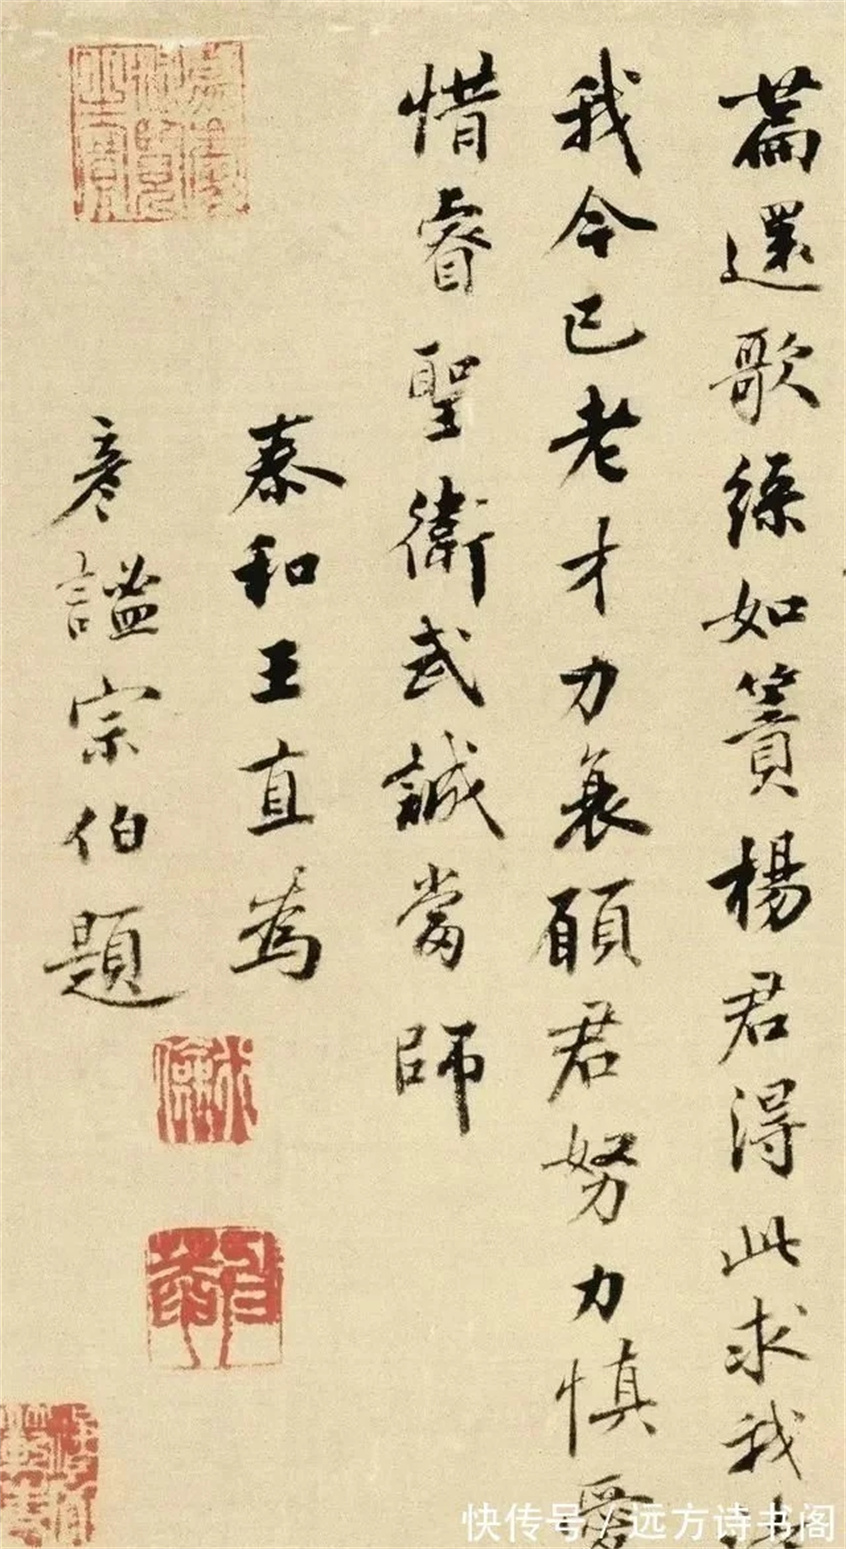 篇還歌綠如簀楊君得此求我
我今已老才力衰願君努力慎愛
惜睿聖衛武誠當師
泰和王直為
彥謐宗伯題
嘉慶御覽之寶
快传号 / 远方诗书阁